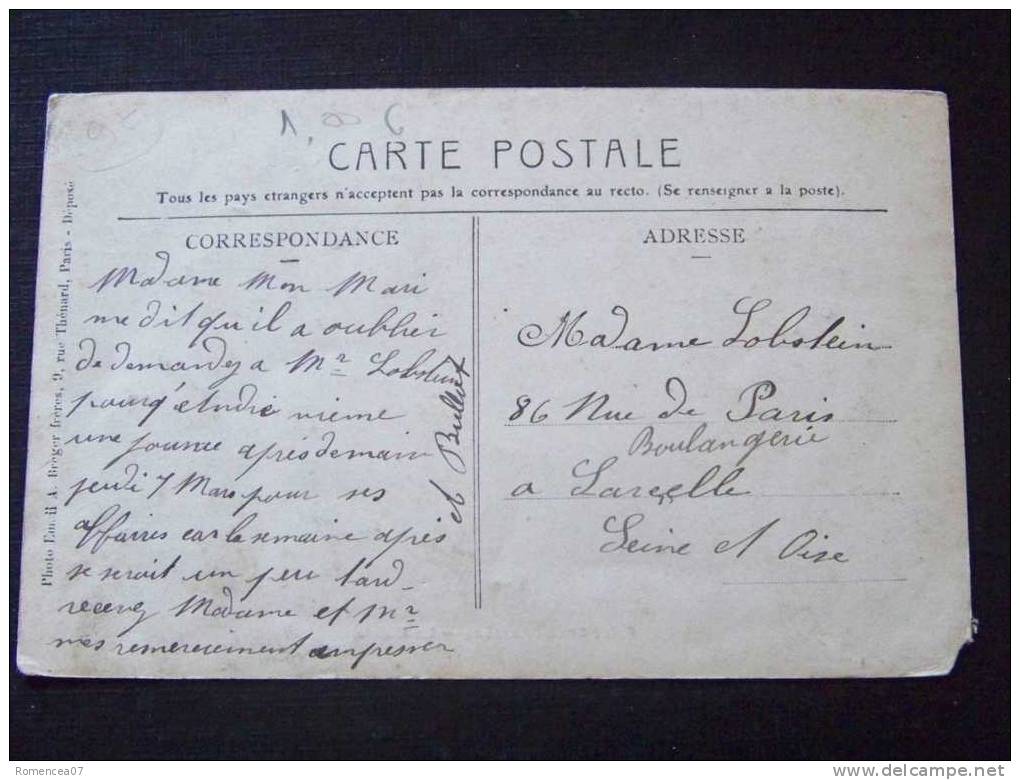 1,00 €
CARTE POSTALE
Tous les pays etrangers n'acceptent pas la correspondance au recto. (Se renseigner a la poste).
Photo Em. & A. Breger frères, 9, rue Thénard, Paris - Déposé
CORRESPONDANCE
Madame Mon Mari
me dit qu'il a oublier
de demandez a Mr Lobstein
pourq'
une journee après demain
jeudi 7 Mars pour ses
affaires car la semaine après
se serait un peu tard
recevez Madame et Mr
mes remerciment empresser
et Bulliot
ADRESSE
Madame Lobstein
86 Rue de Paris
Boulangerie
a Sarcelle
Seine et Oise
Romencea07
delcampe.net